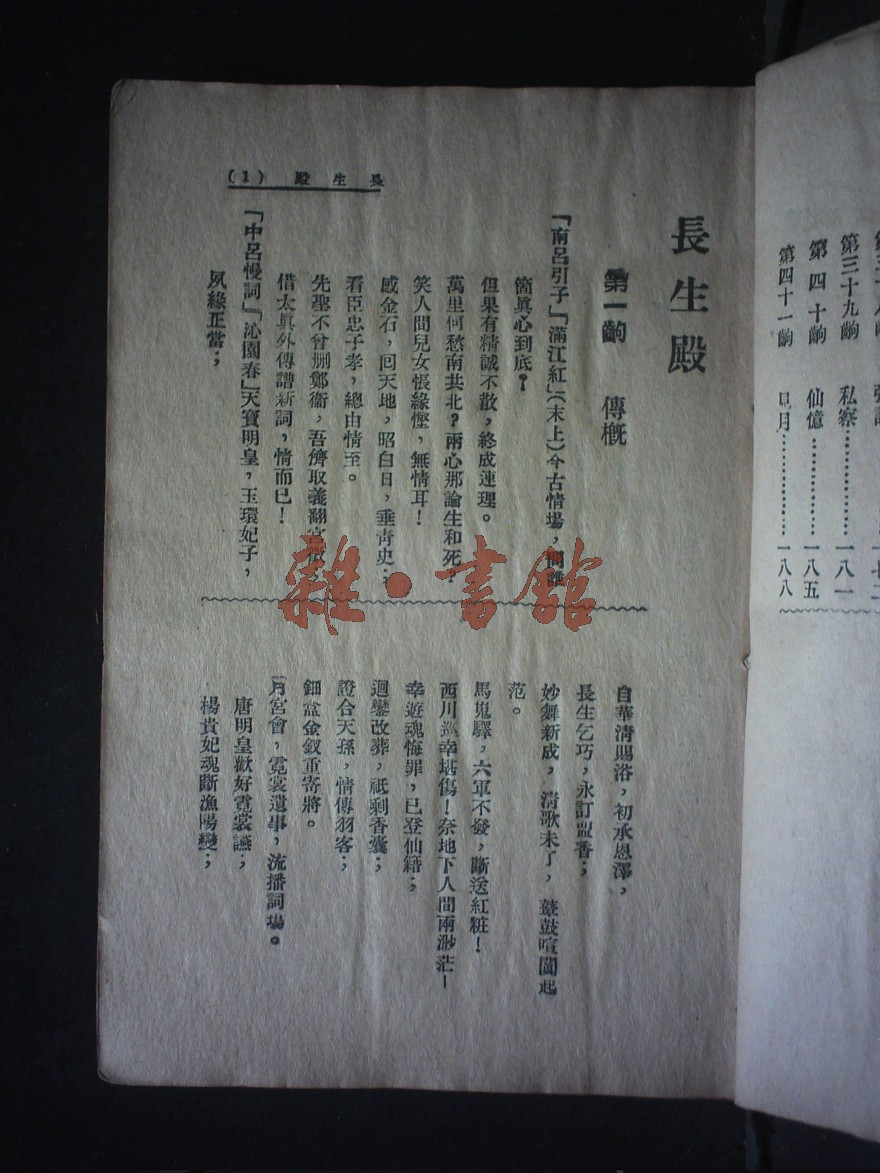 長生殿
第一齣 傳概
「南呂引子」「滿江紅」(末上)今古情場，問誰
箇眞心到底？
但果有精誠不散，終成連理。
萬里何愁南共北？兩心那論生和死？
笑人間兒女悵緣慳，無情耳！
感金石，回天地，昭白日，垂青史；
看臣忠子孝，總由情至。
先聖不曾刪鄭衞，吾儕取義翻宮徵，
借太眞外傳譜新詞，情而已！
「中呂慢詞」「沁園春」天寶明皇，玉環妃子，
夙緣正當；
自華淸賜浴，初承恩澤，
長生乞巧，永訂盟香；
妙舞新成，淸歌未了，鼙鼓喧闐起
范。
馬嵬驛，六軍不發，斷送紅粧！
西川巡幸堪傷！奈地下人間兩渺茫！
幸遊魂悔罪，已登仙籍；
迴鑾改葬，祇剩香囊；
證合天孫，情傳羽客；
鈿盒金釵重寄將。
月宮會，霓裳遺事，流播詞場。
唐明皇歡好霓裳讌；
楊貴妃魂斷漁陽變；
長生殿 (1)
第三十九齣 私察……………一八一
第四十齣 仙憶……………一八五
第四十一齣 見月……………一八八
雜·書館